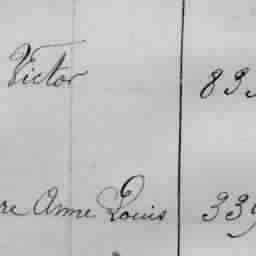 Victor 83
re Anne Louis 339